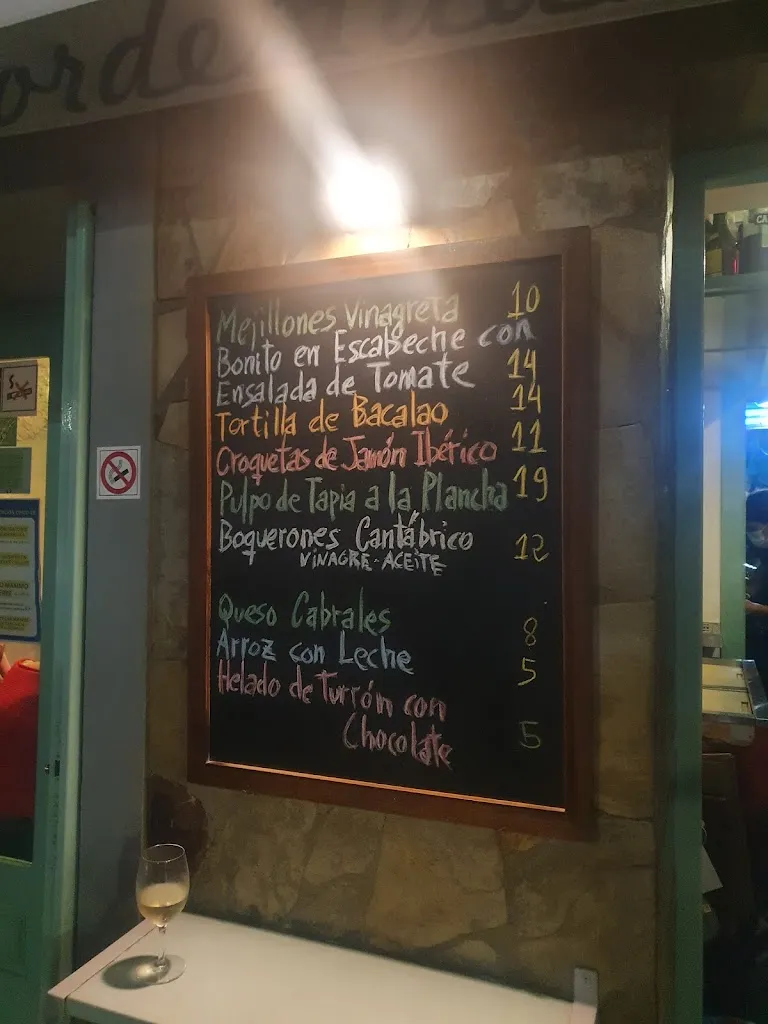 Mejillones Vinagreta 10
Bonito en Escabeche con
Ensalada de Tomate 14
Tortilla de Bacalao 14
Croquetas de Jamón Ibérico 11
Pulpo de Tapia a la Plancha 19
Boquerones Cantábrico 12
VINAGRE-ACEITE
Queso Cabrales 8
Arroz con Leche 5
Helado de Turrón con
Chocolate 5